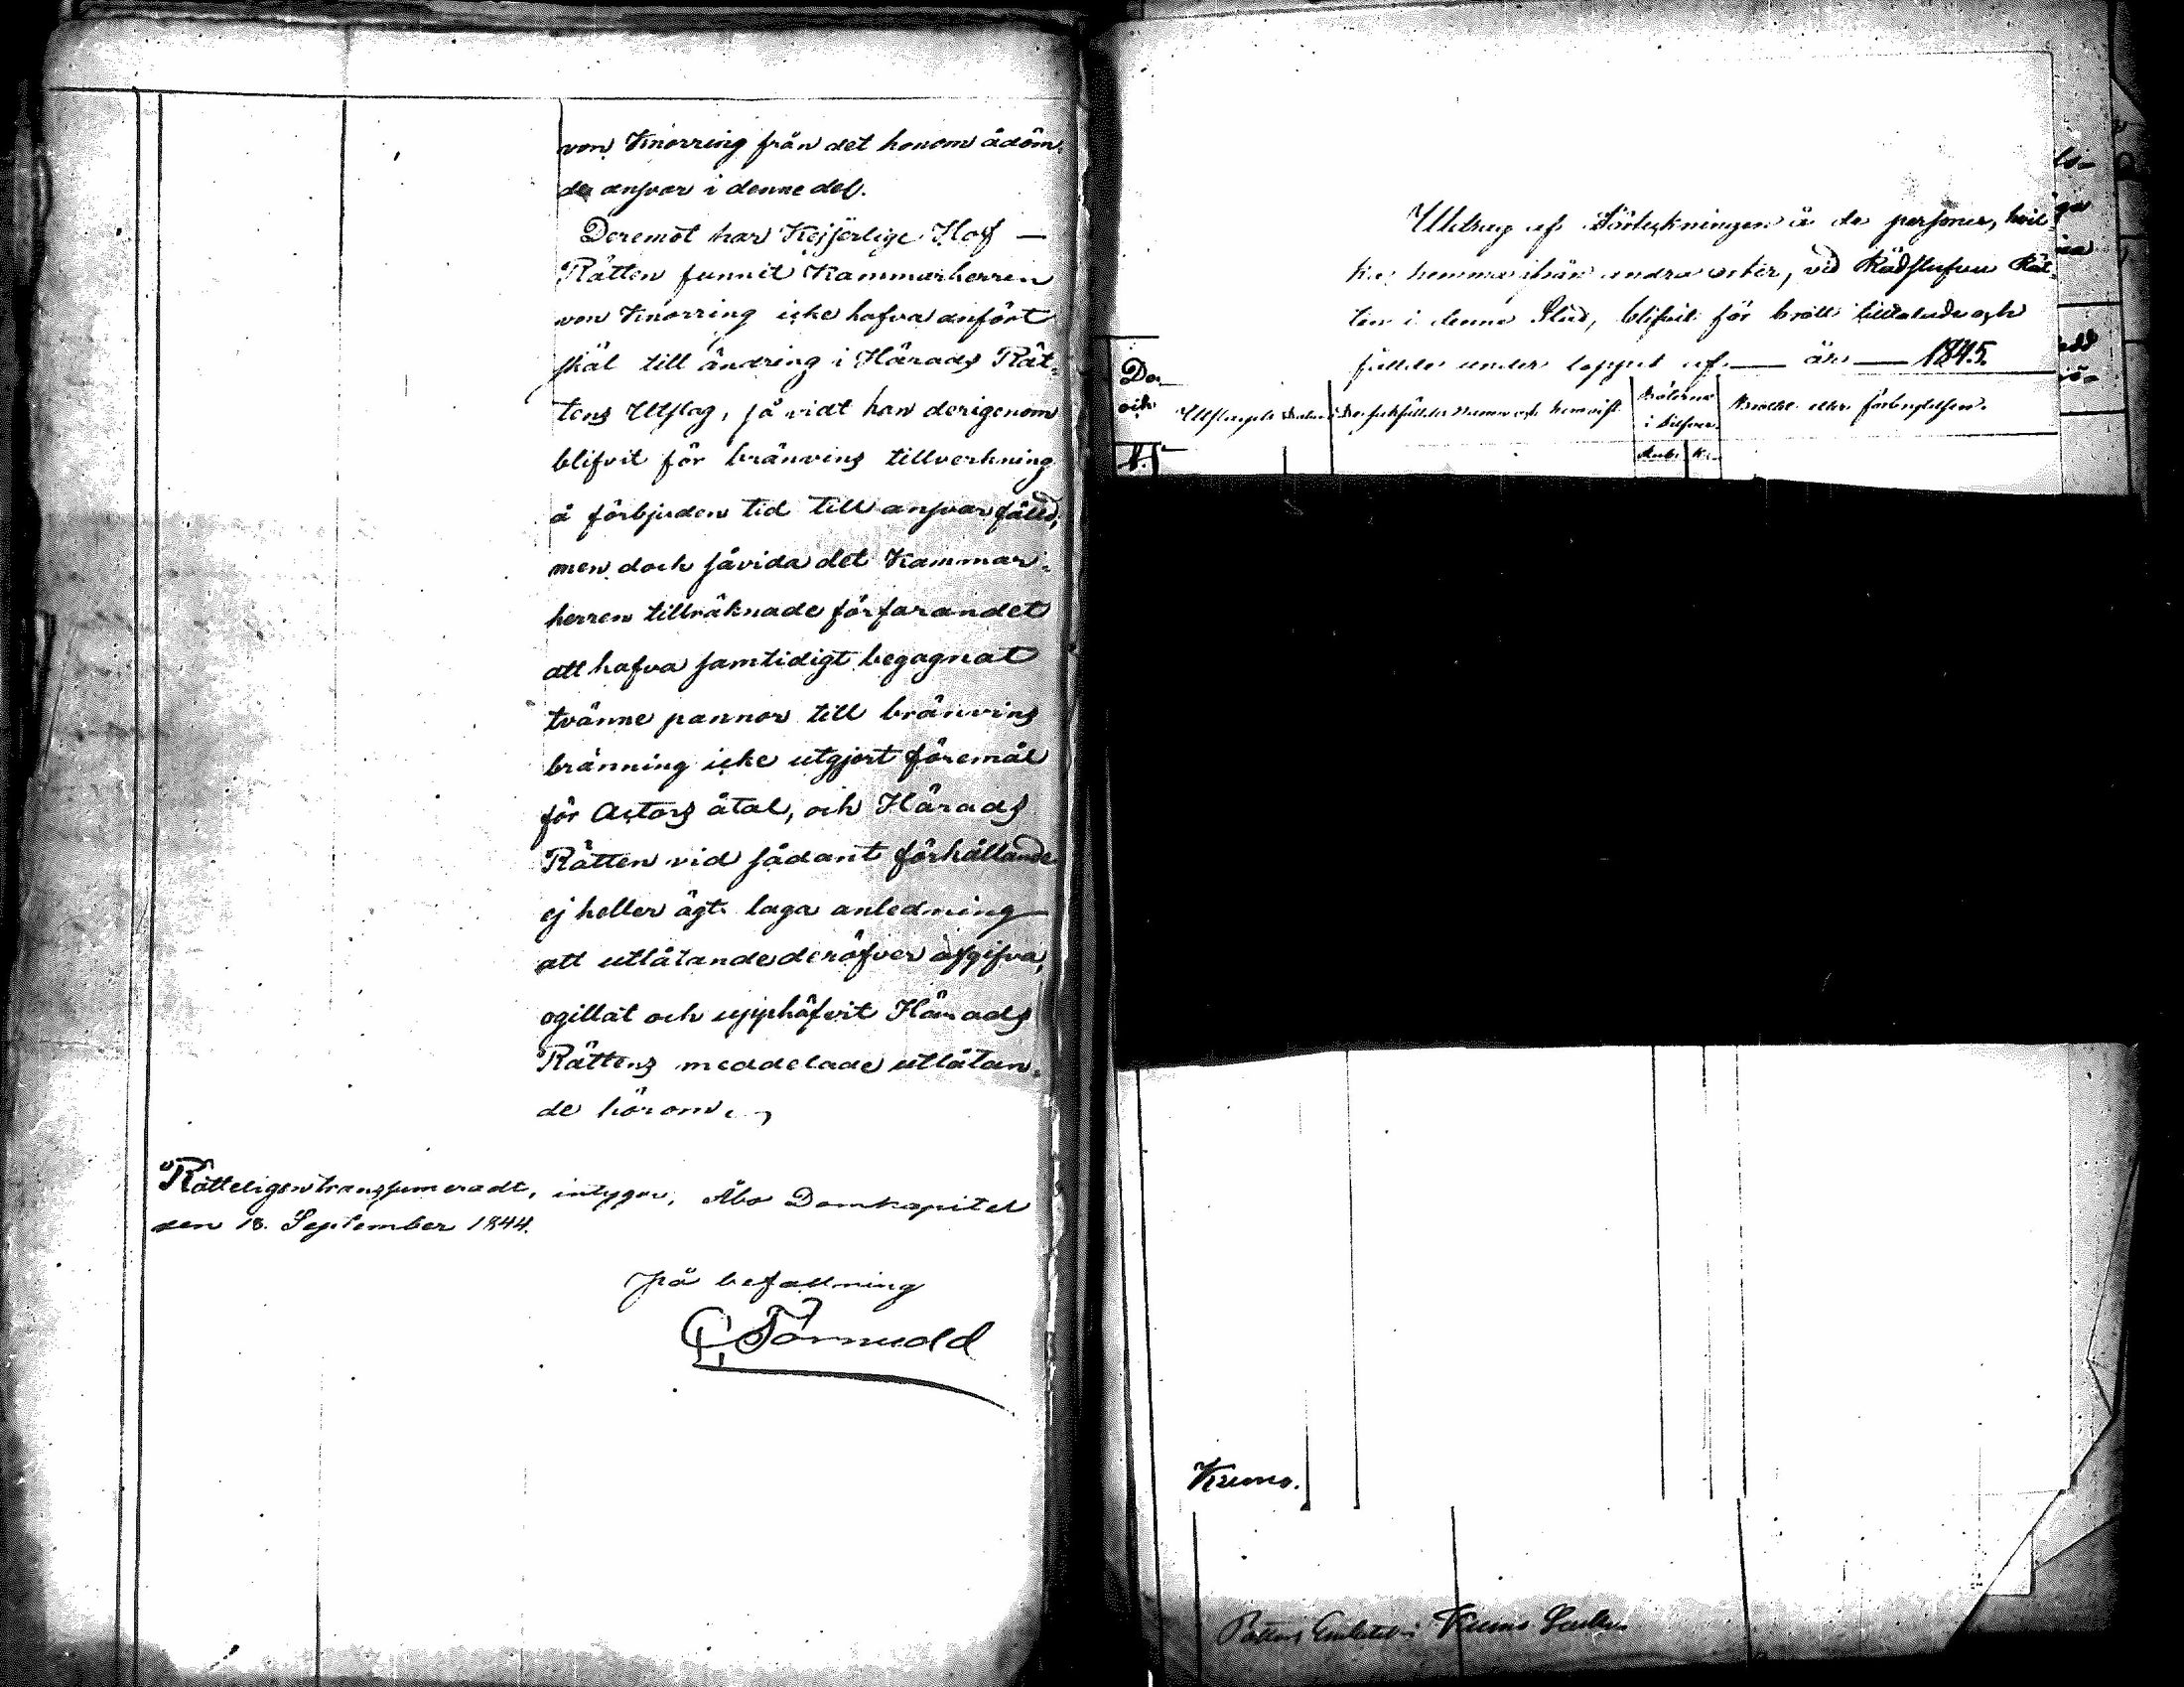 von Knorring från det honom ådöm-
de ansvar i denne del.
Deremot har Kejserlige Hof —
Rätten funnit Kammarherren
von Knorring icke hafva anfört
skäl till ändring i Härads Rät-
tens Utslag, så vidt han derigenom
blifvit för bränvins tillverkning
å förbjuden tid till ansvar fälld,
men doch såvida det Kammar-
herren tillräknade förfarandet
att hafva samtidigt begagnat
tvänne pannor till bränvins
bränning icke utgjort föremål
för Actors åtal, och Härads
Rätten vid sådant förhållande
ej heller ägt laga anledning
att utlåtande deröfver afgifva,
ogillat och upphäfvit Härads
Rättens meddelade utlåtan-
de härom.
Rätteligen transsumeradt, intygar, Åbo Domkapitel
den 18. September 1844.
på befallning
Törnudd
Utdrag af Förteckningen å de personer, hvil-
ka hemma ifrån andra orter, vid Rådstufvu Rät-
ten i denne Stad, blifvit för brott tilltalade och
fällde under loppet af — år — 1845.
De
och
Utslagets datum
De sakfälldes namn och hemvist
Böterne
i Silfver.
Brottet eller förbrytelsen.
Rub. K.
Kumo.
Kumo